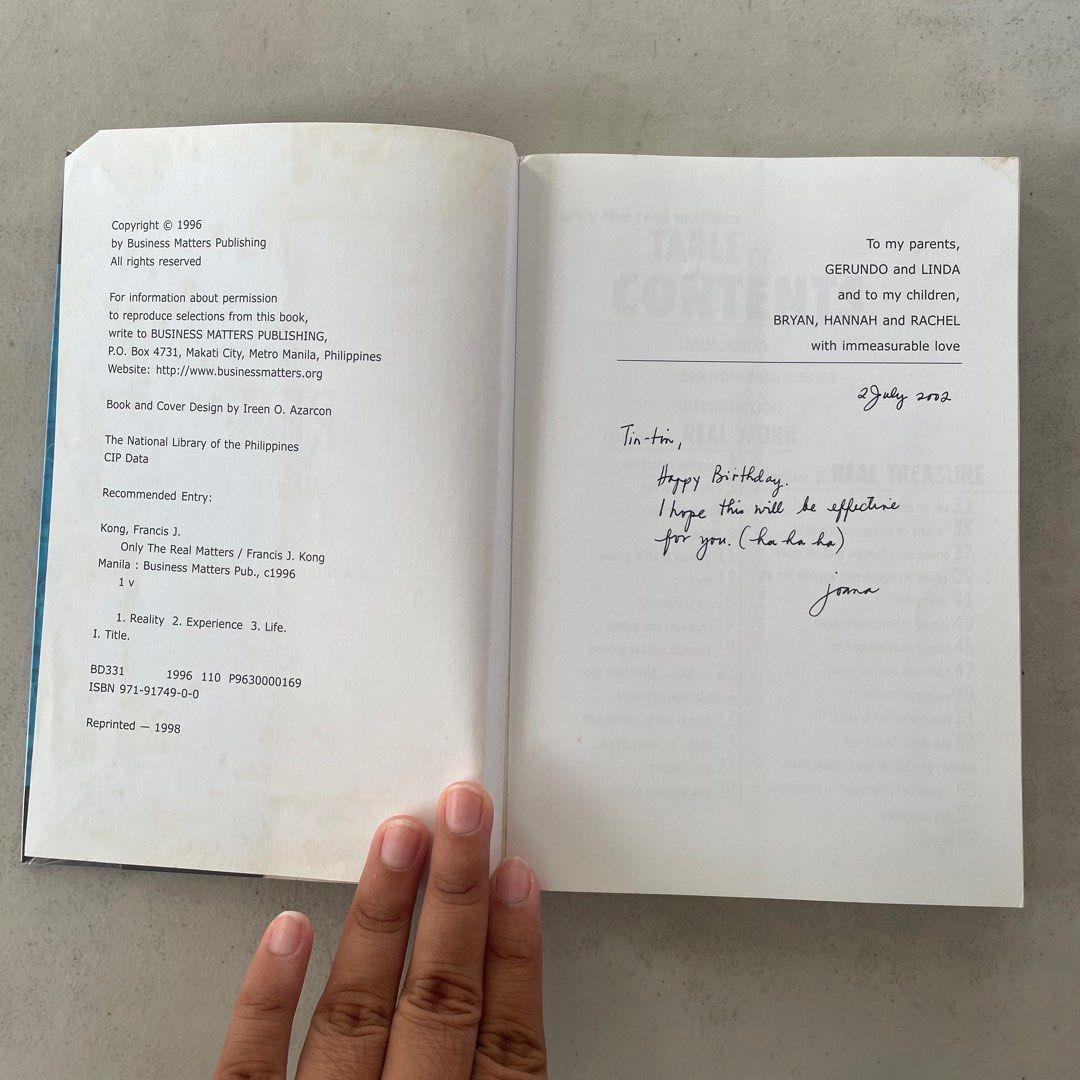 Copyright © 1996
by Business Matters Publishing
All rights reserved
For information about permission
to reproduce selections from this book,
write to BUSINESS MATTERS PUBLISHING,
P.O. Box 4731, Makati City, Metro Manila, Philippines
Website: http://www.businessmatters.org
Book and Cover Design by Ireen O. Azarcon
The National Library of the Philippines
CIP Data
Recommended Entry:
Kong, Francis J.
Only The Real Matters / Francis J. Kong
Manila : Business Matters Pub., c1996
1 v
1. Reality 2. Experience 3. Life.
I. Title.
BD331 1996 110 P9630000169
ISBN 971-91749-0-0
Reprinted — 1998
To my parents,
GERUNDO and LINDA
and to my children,
BRYAN, HANNAH and RACHEL
with immeasurable love
2 July 2002
Tin-tin,
Happy Birthday.
I hope this will be effective
for you. (ha ha ha)
joana